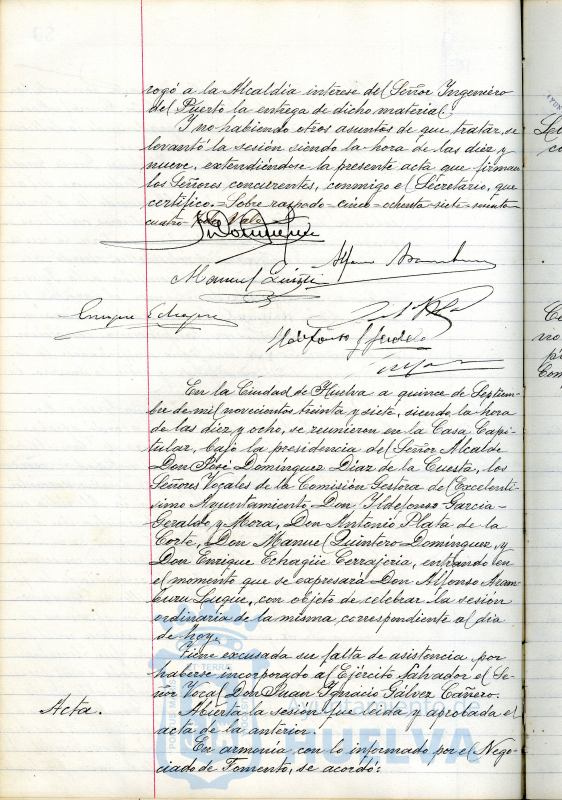 rogó a la Alcaldia interese del Señor Ingeniero
del Puerto la entrega de dicho material.
Y no habiendo otros asuntos de que tratar, se
levantó la sesión siendo la hora de las diez y
nueve, extendiéndose la presente acta que firman
los Señores concurrentes, conmigo el Secretario, que
certifico.=Sobre raspado=cinco=ochenta=siete=
cuatro=
Manuel Quintero
Enrique Echague
Ildefonso G Geraldo
En la Ciudad de Huelva a quince de Septiem-
bre de mil novecientos treinta y siete, siendo la hora
de las diez y ocho, se reunieron en la Casa Capi-
tular, bajo la presidencia del Señor Alcalde
Don José Domínguez Díaz de la Cuesta, los
Señores Vocales de la Comisión Gestora del Excelentí-
simo Ayuntamiento, Don Ildefonso García-
Geraldo y Mora, Don Antonio Plata de la
Corte, Don Manuel Quintero Domínguez, y
Don Enrique Echagüe Cerrajeria, entrando en
el momento que se expresará Don Alfonso Aram-
buru Luque, con objeto de celebrar la sesión
ordinaria de la misma, correspondiente al dia
de hoy.
Tiene excusada su falta de asistencia, por
haberse incorporado al Ejército Salvador el Se-
ñor Vocal Don Juan Ignacio Gálvez Cañero.
Acta.
Abierta la sesión fue leida y aprobada el
acta de la anterior.
En armonia con lo informado por el Nego-
ciado de Fomento, se acordó:
Ayuntamiento de
HUELVA